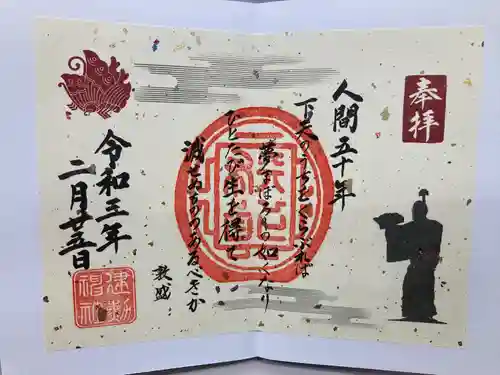 奉拝
人間五十年
下天のうちをくらぶれば
夢まぼろしの如くなり
ひとたび生を保て
滅せぬもののあるべきか
敦盛
令和三年
二月廿五日
建勲神社